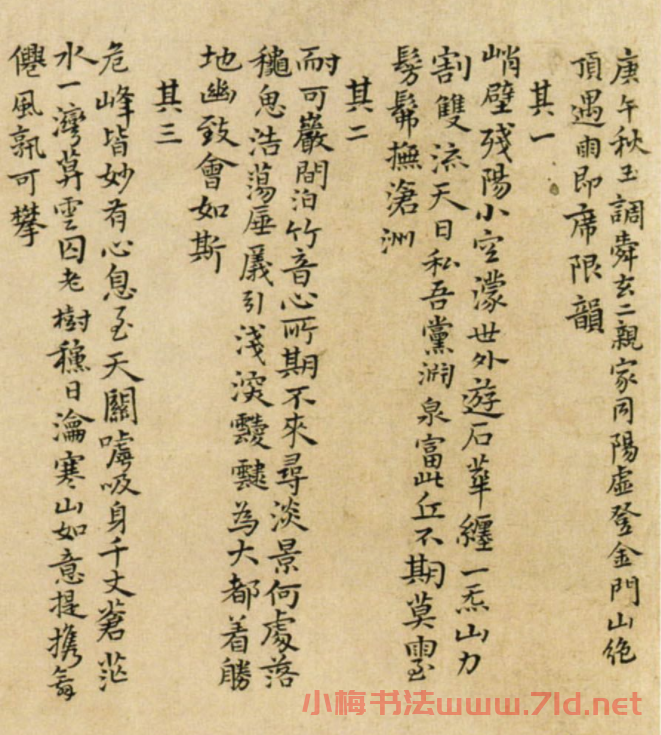 庚午秋玉調舜玄二親家同陽虛登金門山絶
頂遇雨即席限韻
其一
峭壁殘陽小空濛世外遊石華纏一炁山力
割雙流天日私吾黨淵泉富此丘不期莫雲
髣髴撫滄洲
其二
耐可巖間泊竹音心所期不來尋淡景何處落
穐思浩蕩垂義引淺深靉靆為大都着勝
地幽致會如斯
其三
危峰皆妙有心息至天關噓吸身千丈蒼茫
水一灣莫雲囚老樹穩日瀹寒山如意提攜
僊風孰可攀
小梅书法www.7ld.net